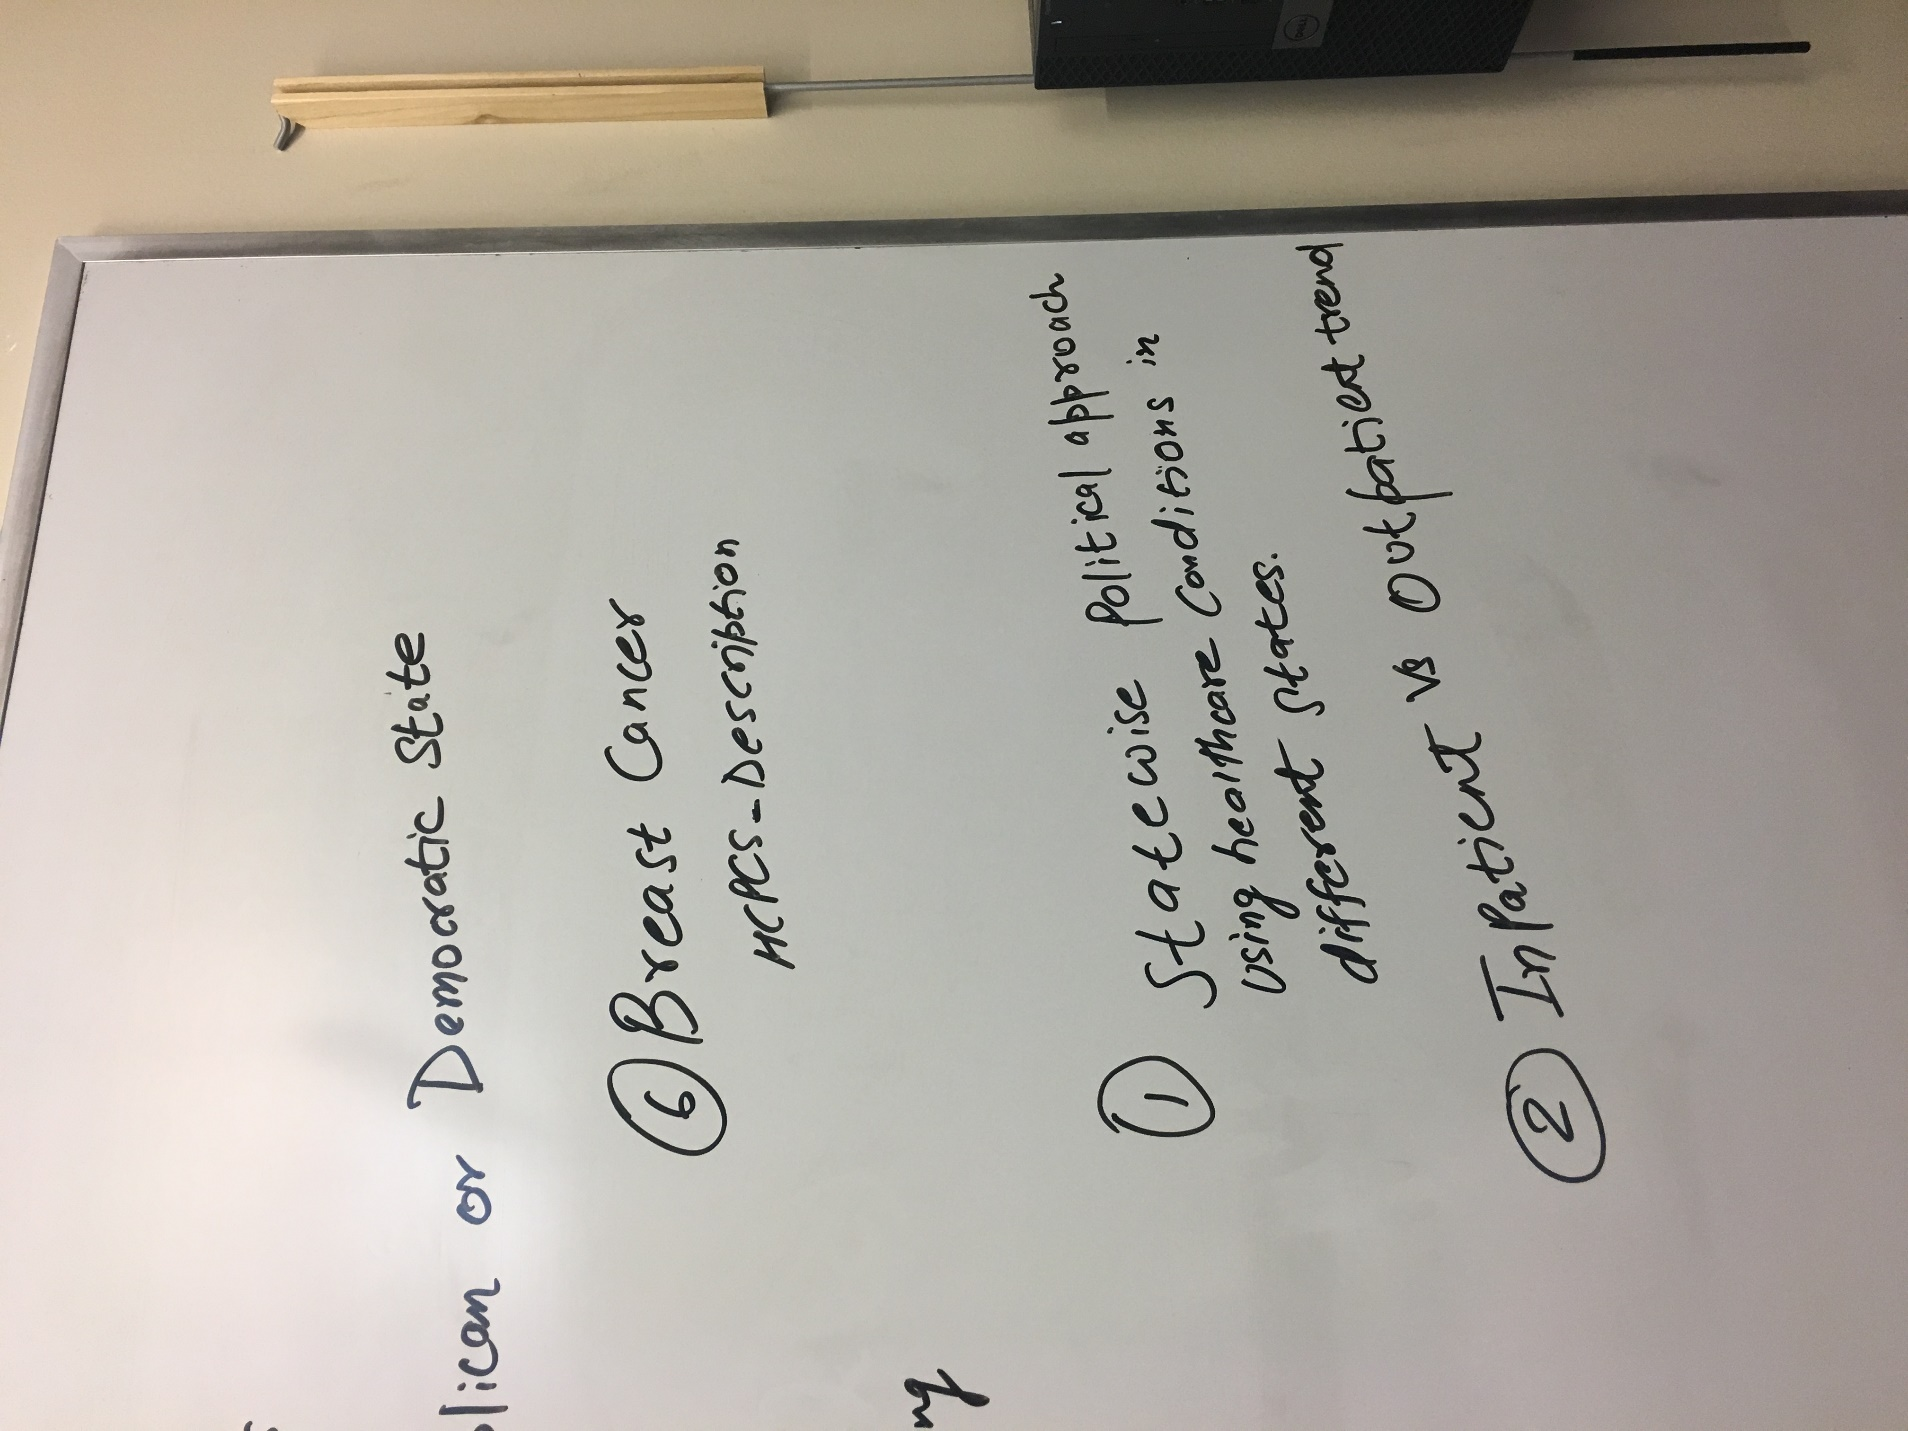 or Democratic State
⑥ Breast Cancer
HCPCS_Description
① Statewise Political approach
using healthcare Conditions in
different states.
② InPatient vs Outpatient trend
DELL